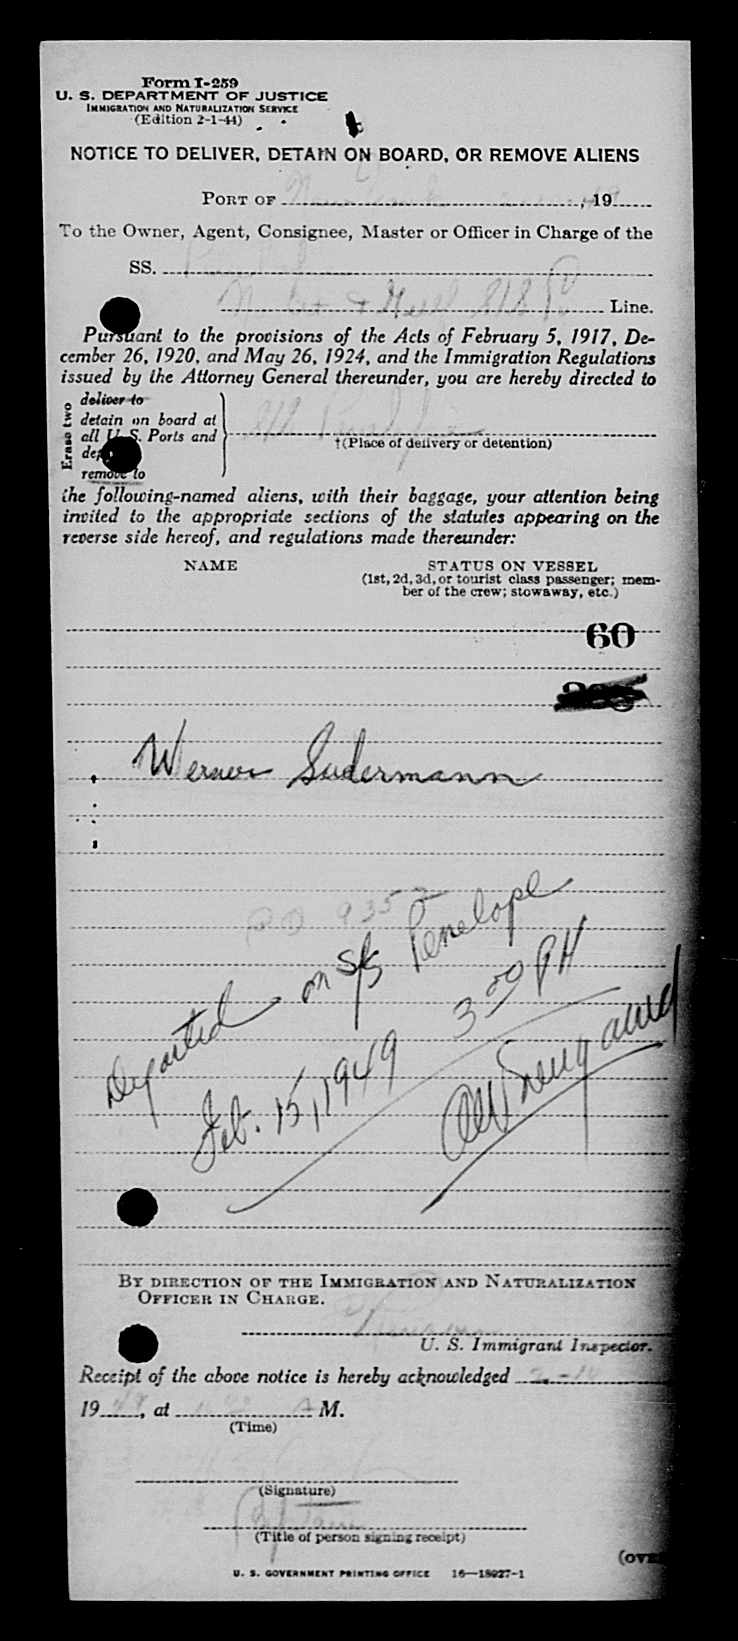 Form I-259
U. S. DEPARTMENT OF JUSTICE
IMMIGRATION AND NATURALIZATION SERVICE
(Edition 2-1-44)
NOTICE TO DELIVER, DETAIN ON BOARD, OR REMOVE ALIENS
PORT OF , 19
To the Owner, Agent, Consignee, Master or Officer in Charge of the
SS.
Line.
Pursuant to the provisions of the Acts of February 5, 1917, De-
cember 26, 1920, and May 26, 1924, and the Immigration Regulations
issued by the Attorney General thereunder, you are hereby directed to
Erase two
deliver to
detain on board at
all U. S. Ports and
remove to
†(Place of delivery or detention)
the following-named aliens, with their baggage, your attention being
invited to the appropriate sections of the statutes appearing on the
reverse side hereof, and regulations made thereunder:
NAME STATUS ON VESSEL
(1st, 2d, 3d, or tourist class passenger; mem-
ber of the crew; stowaway, etc.)
60
Werner Sudermann
935
Departed on S/S Penelope
Feb. 15, 1949 3 00 PM
BY DIRECTION OF THE IMMIGRATION AND NATURALIZATION
OFFICER IN CHARGE.
U. S. Immigrant Inspector.
Receipt of the above notice is hereby acknowledged
19 , at M.
(Time)
(Signature)
(Title of person signing receipt)
(OVE
U. S. GOVERNMENT PRINTING OFFICE 16—18027-1